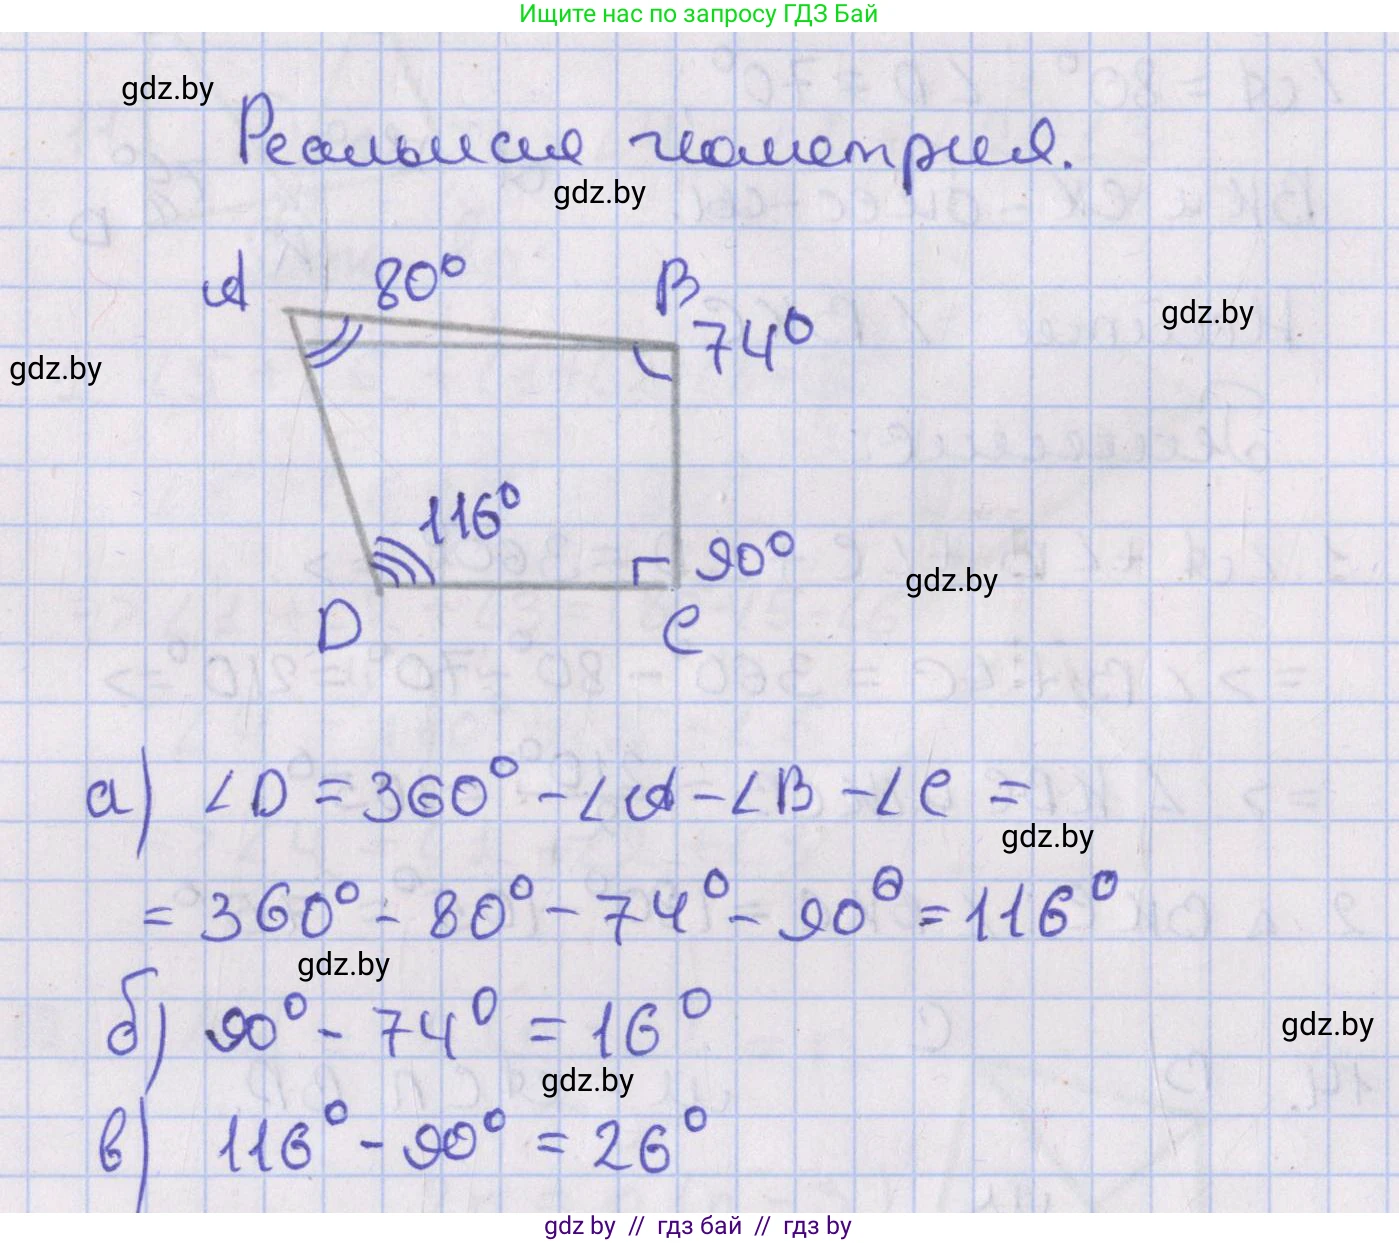 Ищите нас по запросу ГДЗ Бай
gdz.by
Реальная геометрия.
gdz.by
A 80° B
74°
gdz.by
gdz.by
116°
90°
gdz.by
D C
а) ∠D = 360° - ∠A - ∠B - ∠C =
gdz.by
= 360° - 80° - 74° - 90° = 116°
gdz.by
б) 90° - 74° = 16°
gdz.by
gdz.by
в) 116° - 90° = 26°
gdz by // гдз бай // гдз by